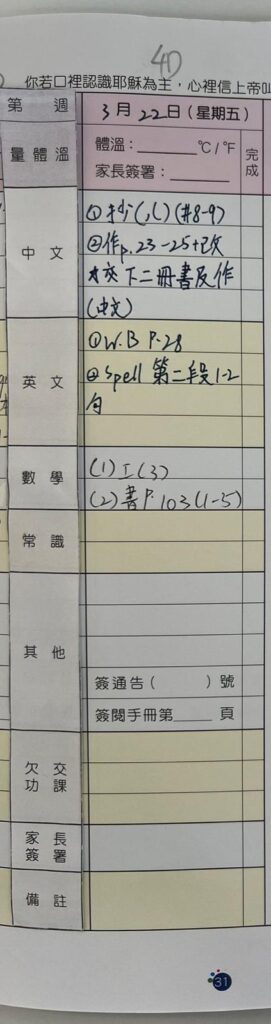 4D
你若口裡認識耶穌為主，心裡信上帝叫
第 週
3月22日（星期五）
量體溫
體溫：______℃/℉
家長簽署：______
完成
中文
①抄(八)(#8-9)
②作p.23-25+改
*交下二冊書及作
(中文)
英文
①W.B P.28
②Spell 第二段1-2
句
數學
(1)工(3)
(2)書P.103(1-5)
常識
其他
簽通告（ ）號
簽閱手冊第____頁
欠交
功課
家長
簽署
備註
31